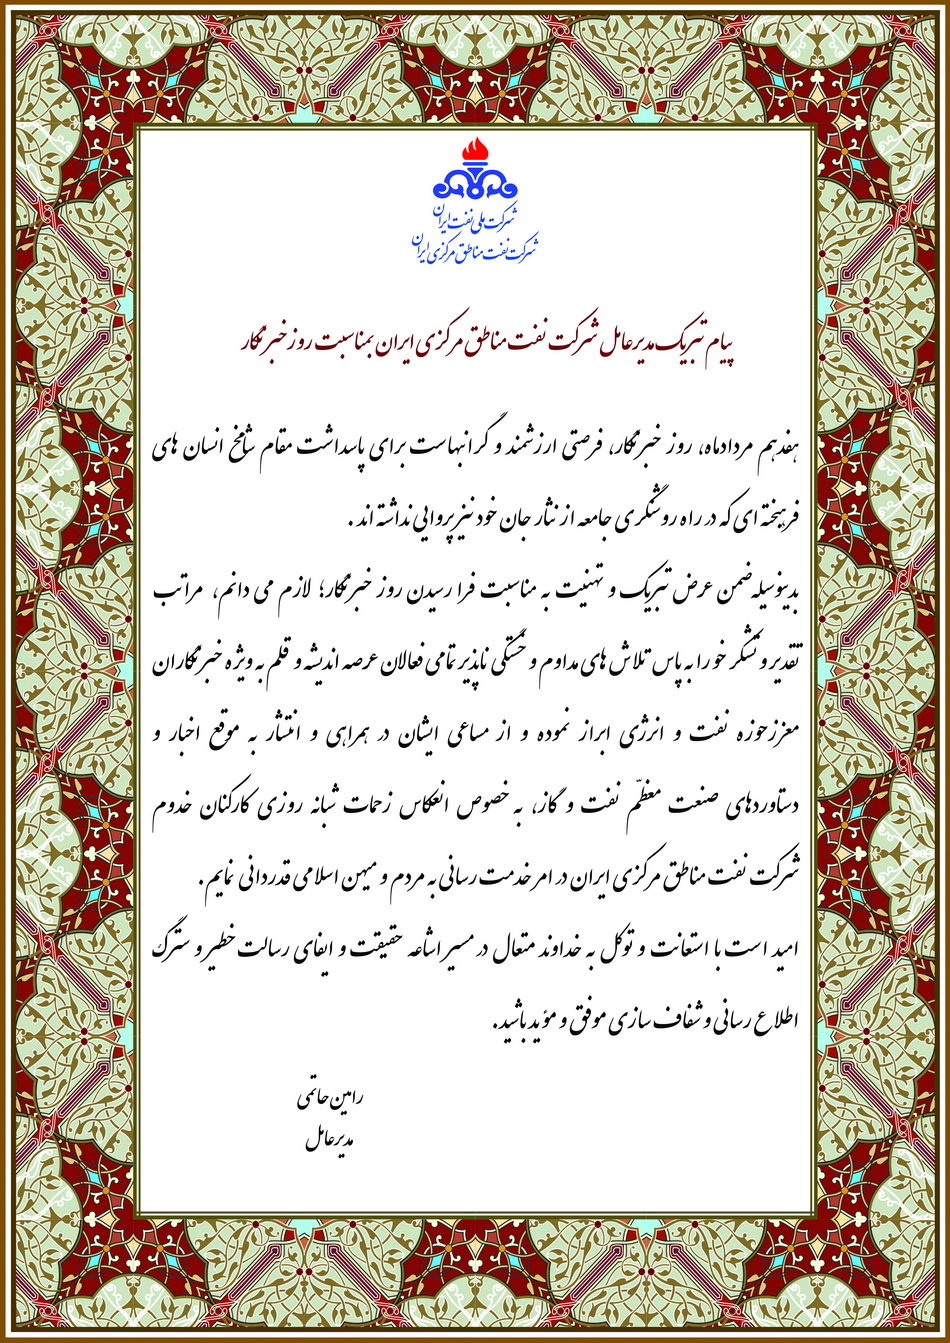 شرکت ملی نفت ایران
شرکت نفت مناطق مرکزی ایران
پیام تبریک مدیرعامل شرکت نفت مناطق مرکزی ایران بمناسبت روز خبرنگار
هفدهم مردادماه، روز خبرنگار، فرصتی ارزشمند و گرانبهاست برای پاسداشت مقام شامخ انسان های
فرهیخته ای که در راه روشنگری جامعه از نثار جان خود نیز پروایی نداشته اند .
بدینوسیله ضمن عرض تبریک و تهنیت به مناسبت فرا رسیدن روز خبرنگار؛ لازم می دانم، مراتب
تقدیر و تشکر خو را به پاس تلاش های مداوم و خستگی ناپذیر تمامی فعالان عرصه اندیشه و قلم به ویژه خبرنگاران
معزز حوزه نفت و انرژی ابراز نموده و از مساعی ایشان در همراهی و انتشار به موقع اخبار و
دستاوردهای صنعت معظّم نفت و گاز، به خصوص انعکاس زحمات شبانه روزی کارکنان خدوم
شرکت نفت مناطق مرکزی ایران در امر خدمت رسانی به مردم و میهن اسلامی قدردانی نمایم .
امید است با استعانت و توکل به خداوند متعال در مسیر اشاعه حقیقت و ایفای رسالت خطیر و سترگ
اطلاع رسانی و شفاف سازی موفق و موید باشید.
رامین حاتمی
مدیرعامل